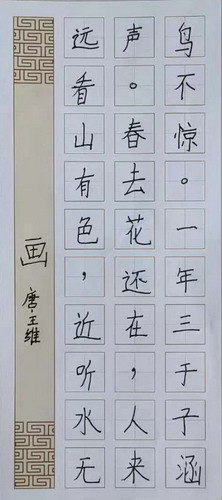 画
唐·王维
远看山有色，近听水无
声。春去花还在，人来
鸟不惊。一年三于子涵